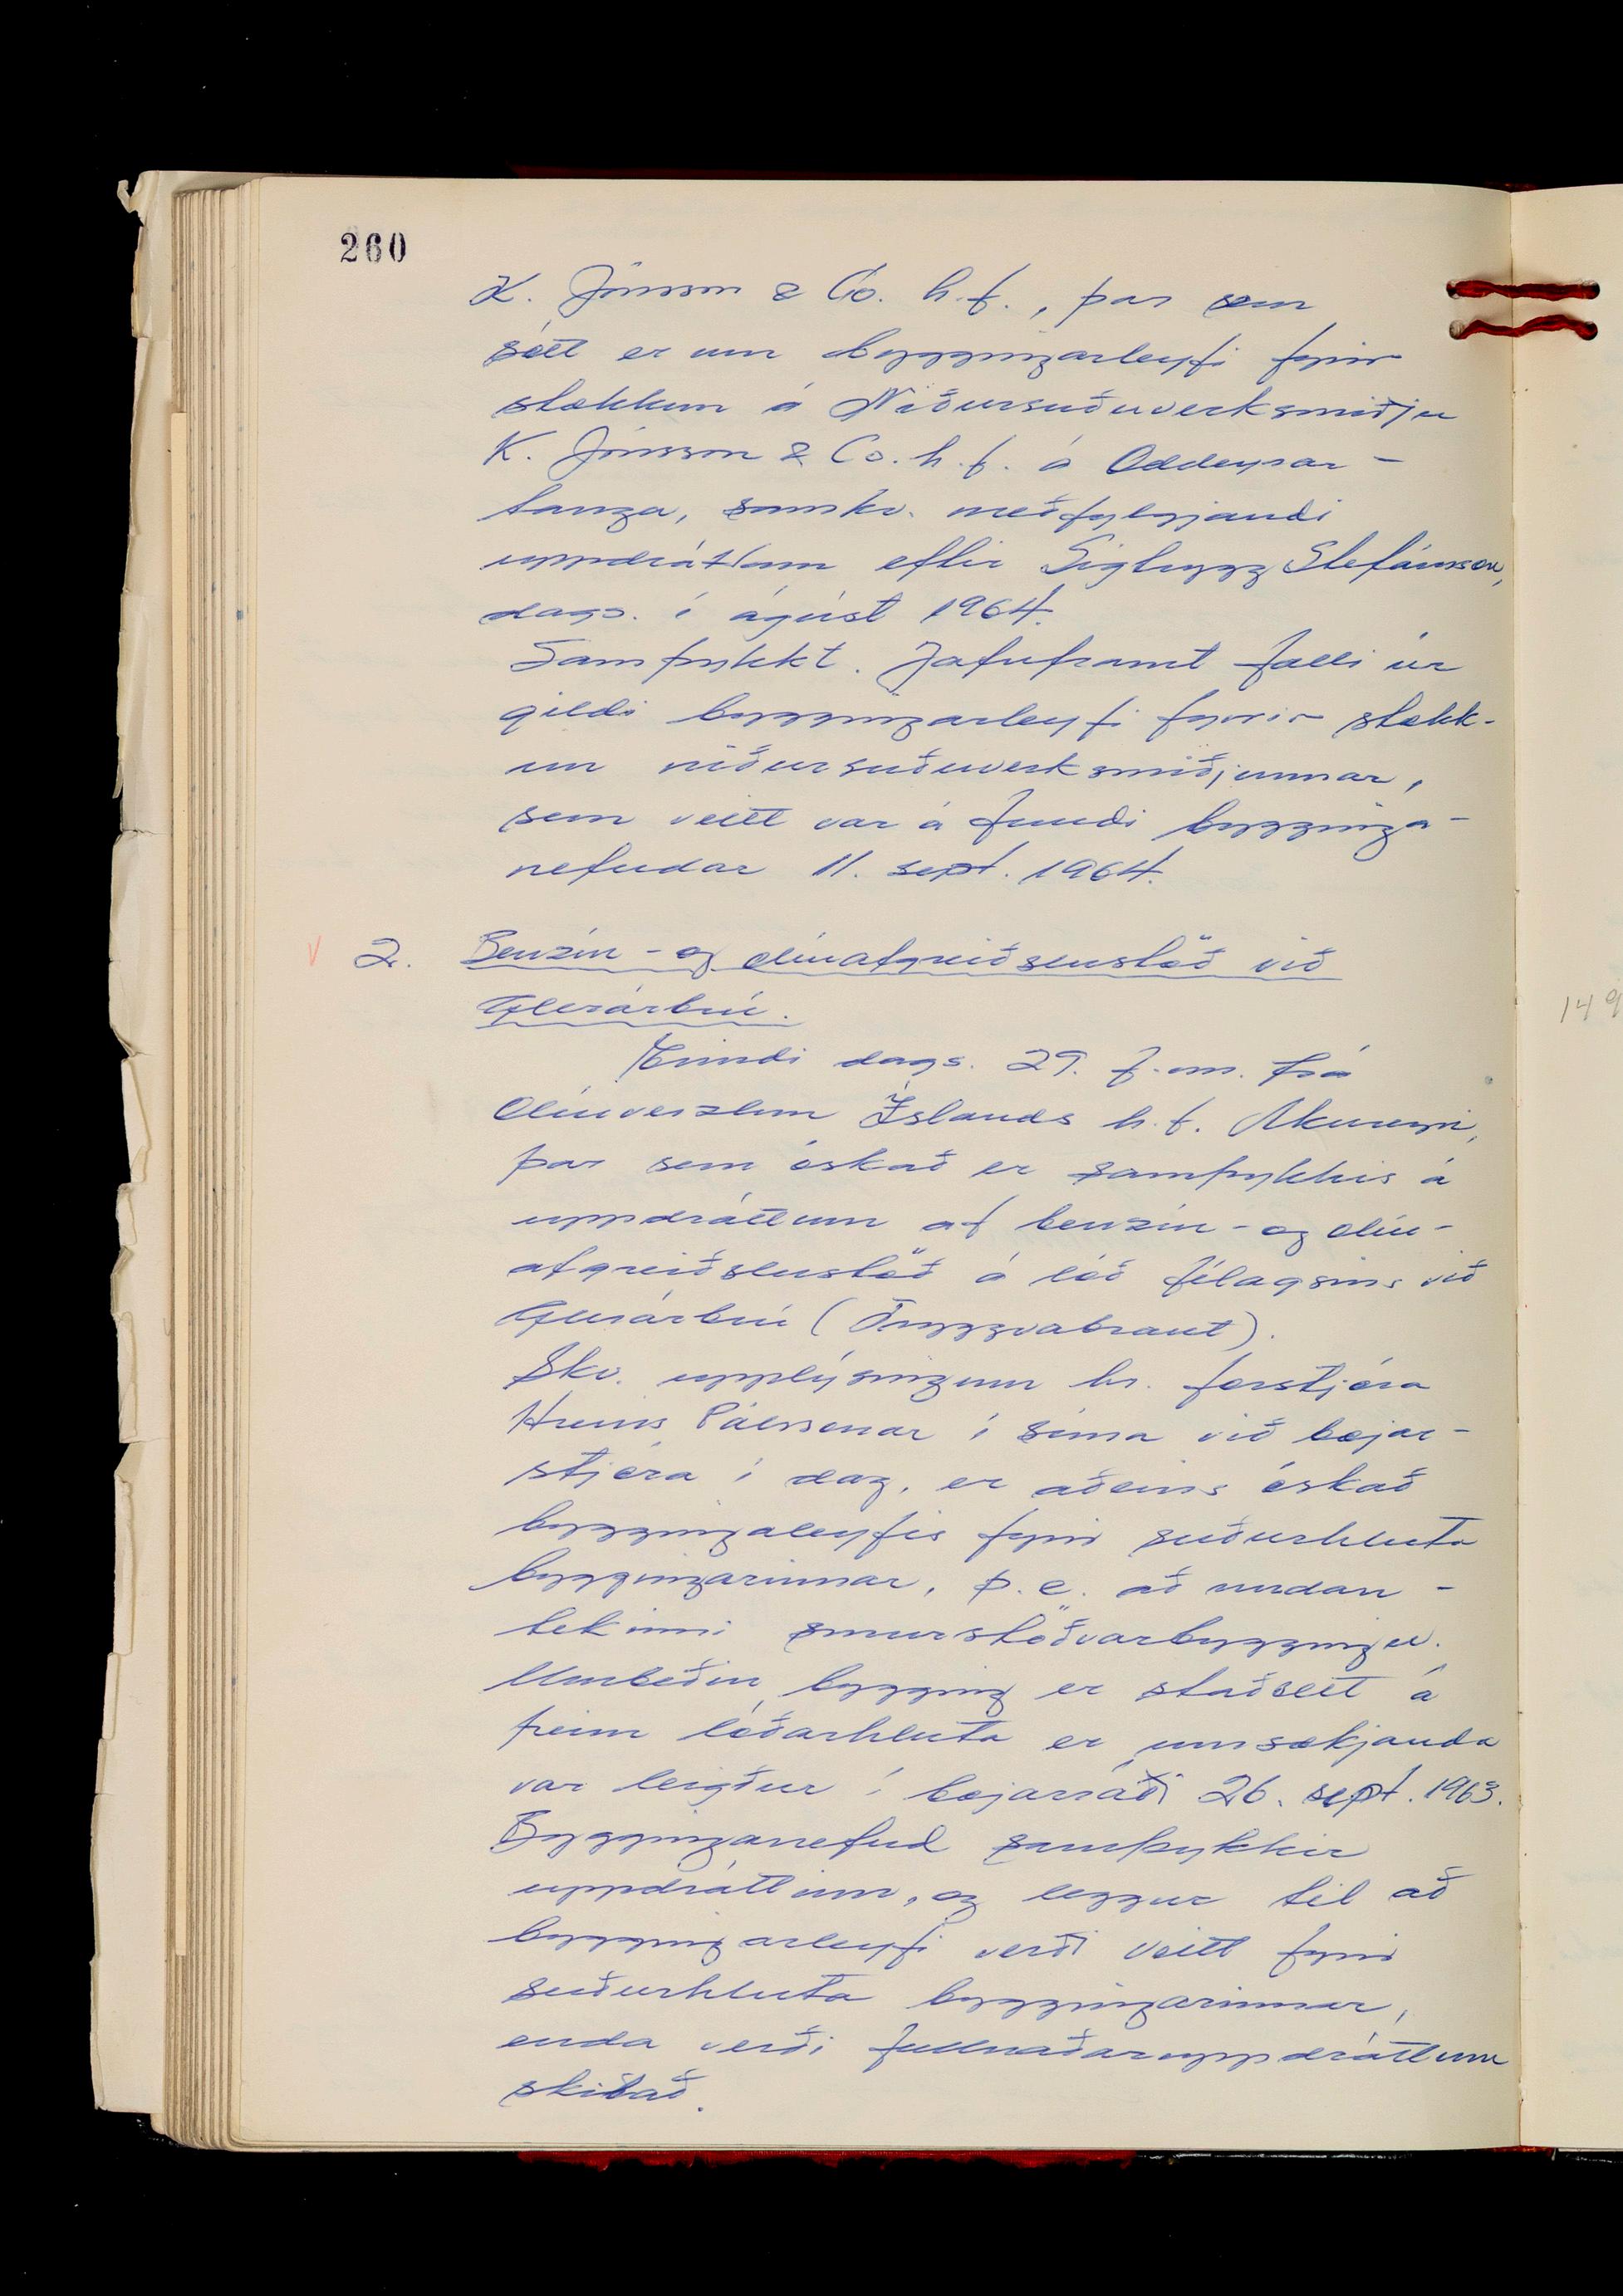 260
K. Jónsson & Co. h.f., þar sem
sótt er um byggingarleyfi fyrir
stækkun á Niðursuðuverksmiðju
K. Jónsson & Co. h.f. á Oddeyrar-
tanga, samkv. meðfylgjandi
uppdráttum eftir Sigtrygg Stefánsson,
dags. í ágúst 1964.
Samþykkt. Jafnframt falli úr
gildi byggingarleyfi fyrir stækk-
un niðursuðuverksmiðjunnar,
sem veitt var á fundi bygginga-
nefndar 11. sept. 1964.
V 2. Benzín- og olíuafgreiðslustöð við
Glerárbrú.
Erindi dags. 29. f.m. frá
Olíuverzlun Íslands h.f. Akureyri,
þar sem óskað er samþykkis á
uppdráttum af benzín- og olíu-
afgreiðslustöð á lóð félagsins við
Glerárbrú (Tryggvabraut).
Skv. upplýsingum hr. forstjóra
Hreins Pálssonar í síma við bæjar-
stjóra í dag, er aðeins óskað
byggingaleyfis fyrir suðurhluta
byggingarinnar, þ.e. að undan-
tekinni smurstöðvarbyggingu.
Umbeðin bygging er staðsett á
þeim lóðarhluta er umsækjanda
var leigður í bæjarráði 26. sept. 1963.
Bygginganefnd samþykkir
uppdráttinn, og leggur til að
byggingarleyfi verði veitt fyrir
suðurhluta byggingarinnar,
enda verði fullnaðaruppdráttum
skilað.
149